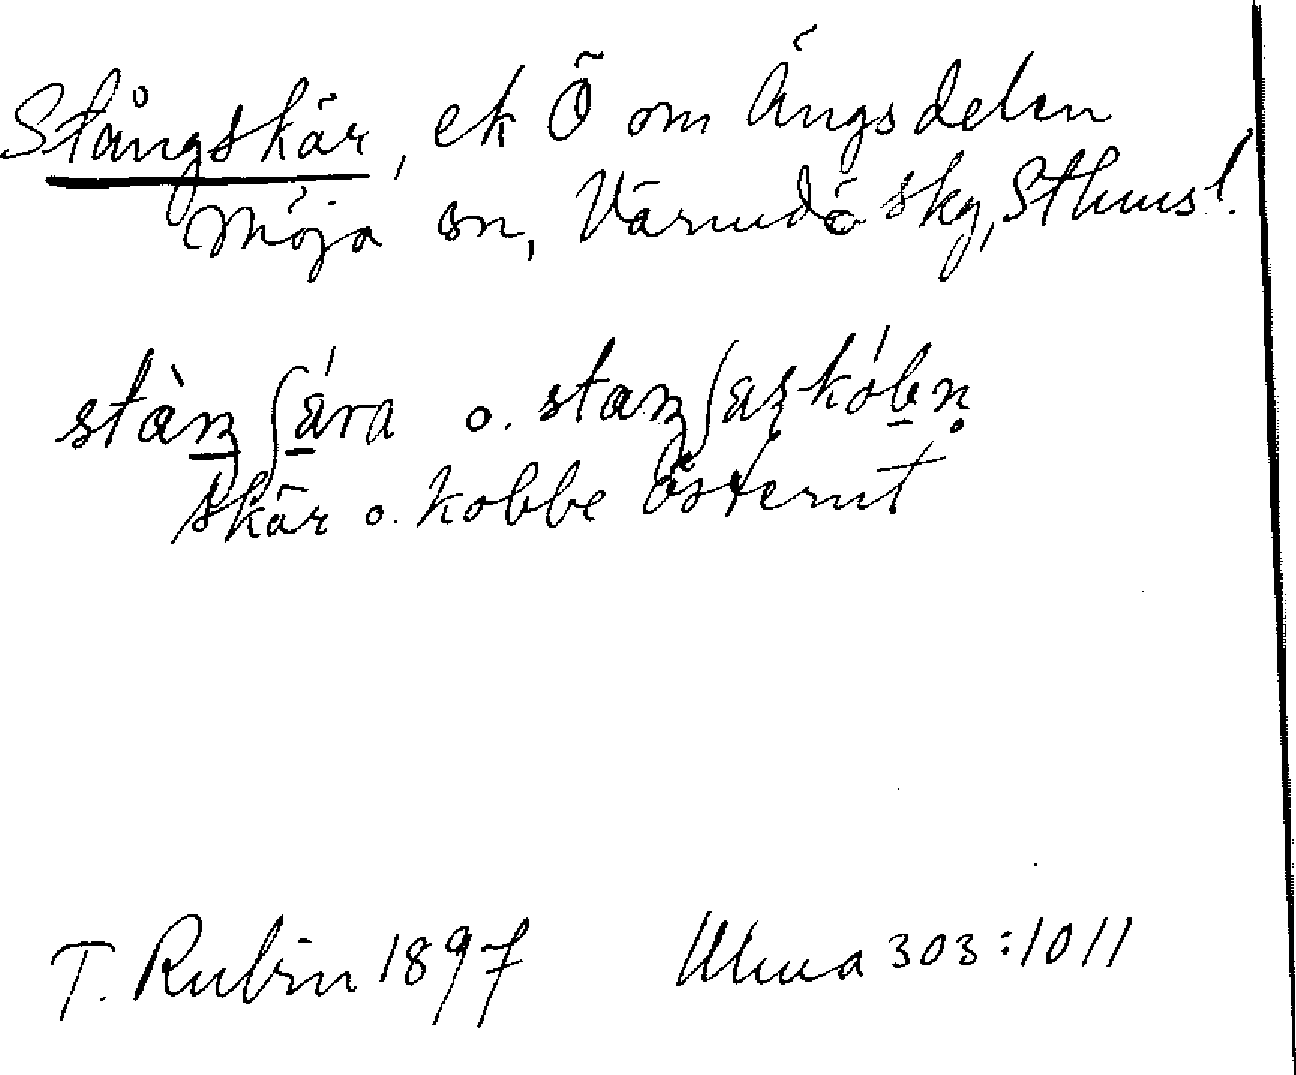 Stångskär, ek Ö om Ängsdelen
Möja sn, Värmdö skg, Sthms l.
skär o. kobbe österut
T. Rubin 1897 Uluma 303:1011